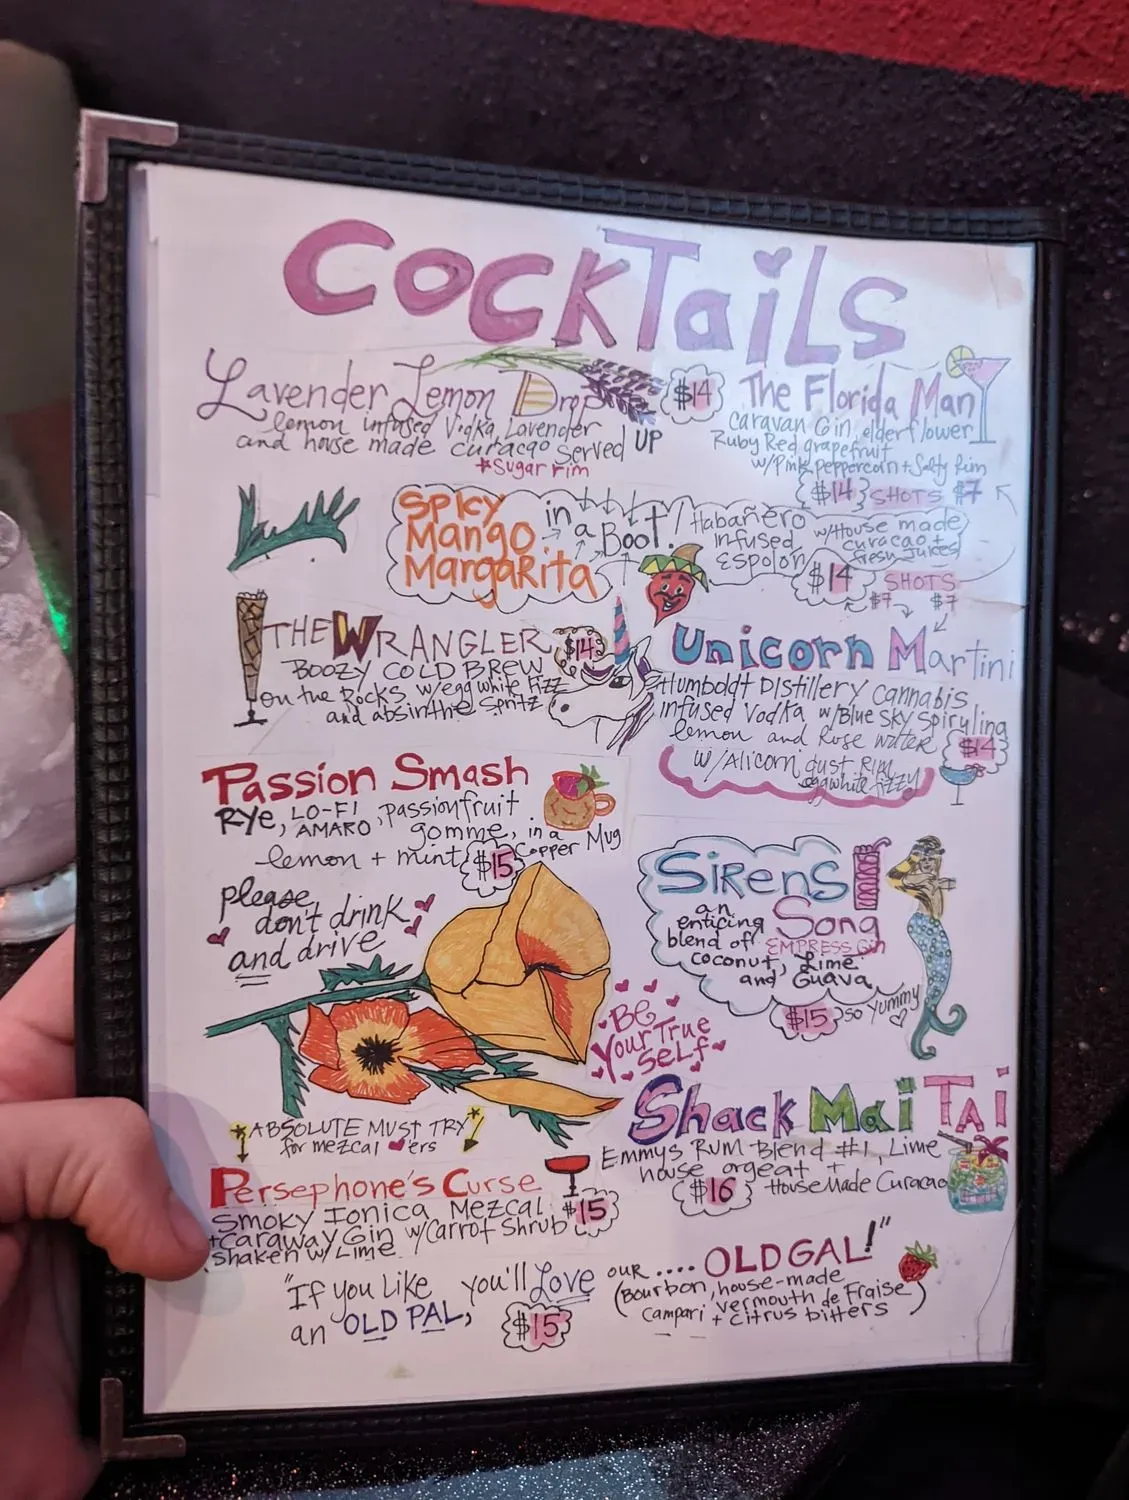 Cocktails
Lavender Lemon Drop
$14
lemon infused Vodka Lavender
and house made curacao served UP
*Sugar rim
The Florida Man
Caravan Gin, elderflower
Ruby Red grapefruit
w/Pink peppercorn + Salty Rim
$14 SHOTS $7
Spicy
Mango
Margarita
in
a
Boot!
Habañero
infused
Espolón
w/House made
curacao +
fresh Juices
$14
SHOTS
$7 $7
THE WRANGLER
$14
BOOZY COLD BREW
on the Rocks w/egg white fizz
and absinthe Spritz
Unicorn Martini
Humboldt Distillery Cannabis
infused Vodka w/Blue Sky Spirulina
lemon and Rose water
$14
w/Alicorn dust Rim
eggwhite fizzy
Passion Smash
Rye, LO-FI AMARO, passionfruit
gomme, in a
lemon + mint Copper Mug
$15
please
don't drink
and drive
Sirens
Song
an
enticing
blend of EMPRESS Gin
coconut, Lime
and Guava
$15 so Yummy
Be
Your True
Self
*ABSOLUTE MUST TRY*
for mezcal ♥'ers
Persephone's Curse
Smoky Ionica Mezcal
$15
+Caraway Gin w/Carrot Shrub
shaken w/Lime
Shack Mai Tai
Emmys Rum Blend #1, Lime
house orgeat +
$16 House Made Curacao
"If you Like
an OLD PAL,
you'll Love
$15
our .... OLD GAL!"
(Bourbon, house-made
vermouth de Fraise
Campari + citrus bitters)